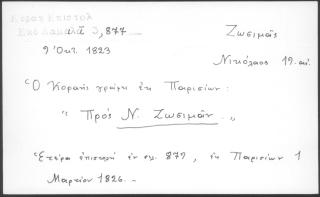 Κοραη Επιστολ
Εκδ Δαμαλᾶ 3, 877
Ζωσιμᾶς
9 Ὀκτ. 1823
Νικόλαος 19. αἰ.
Ὁ Κοραῆς γράφει ἐκ Παρισίων :
" Πρός Ν. Ζωσιμᾶν ..,,
Ἑτέρα ἐπιστολή ἐν σελ. 879, ἐκ Παρισίων 1
Μαρτίου 1826. -